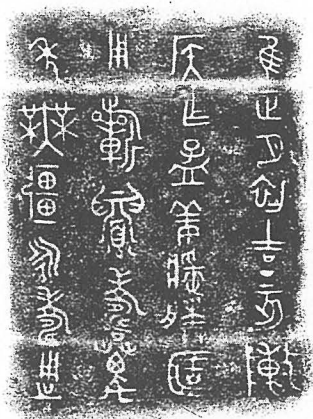 隹正月初吉丁亥敶
侯乍孟姜
用眉壽萬
年無疆永壽用之